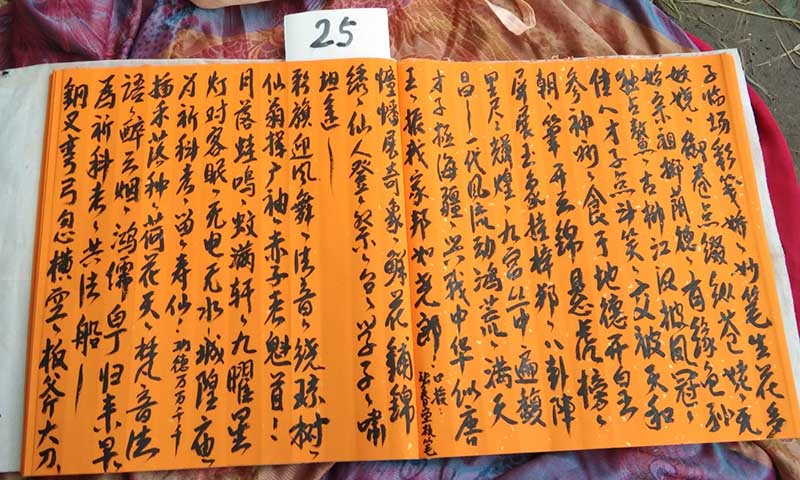 25
子临场彩笔娇、妙笔生花多
妖娆、御卷点缀纵
始宗祖柳荫德、有缘色
独占鳌、古柳江汉披凤冠、
佳人才子点斗笑、文被天和
参神州、食于地德开白玉
朝、笔开玉锦悬虎榜、
屏展玉象桂梓乡、八卦阵
里尽辉煌、九宫丛中遍馥
昌！一代风流动鸿荒、满天
才子极海疆、兴我中华似唐
王、振我家邦如尧郎！口授：
执笔
幢幡展奇象、鲜花铺锦
绣、仙人登祭台、学子、啸
坦途
彩旗迎风舞、法音绕琼树、
仙翁挥广袖、赤子考魁首！
月落蛙鸣、蚊满轩、九曜星
灯对客眠、无电无水城隍庙、
为祈科考留寿仙、功德万万千千
插禾落种荷花天、梵音法
语醉云烟、鸿儒白丁归来早、
为祈科考共法船
钢叉弯弓忽横空、板斧大刀、